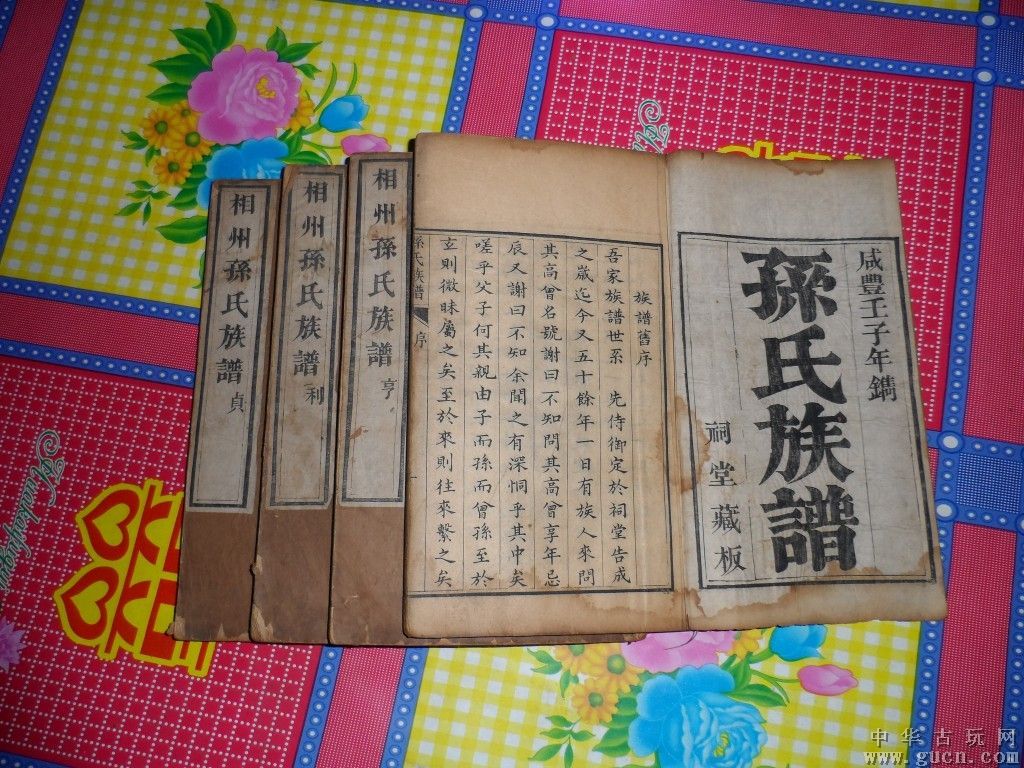 咸豐壬子年鐫
孫氏族譜
祠堂藏板
族譜舊序
吾家族譜世系 先侍御定於祠堂告成
之歲迄今又五十餘年一日有族人來問
其高曾名號謝曰不知問其高曾享年忌
辰又謝曰不知余聞之有深恫乎其中矣
嗟乎父子何其親由子而孫而曾孫至於
玄則微昧屬之矣至於來則往來繫之矣
孫氏族譜 序
相州孫氏族譜 亨
相州孫氏族譜 利
相州孫氏族譜 貞
中华古玩网
www.gucn.com